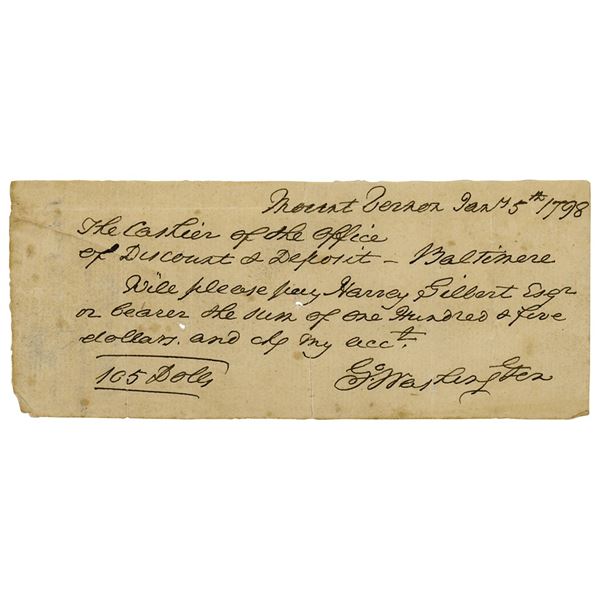 Mount Vernon Jany 5th 1798
The Cashier of the Office
of Discount & Deposit – Baltimore
Will please pay Harvey Gilbert Esqr
or bearer the sum of one Hundred & five
dollars. and chg my acct.
105 Dolls
Go. Washington